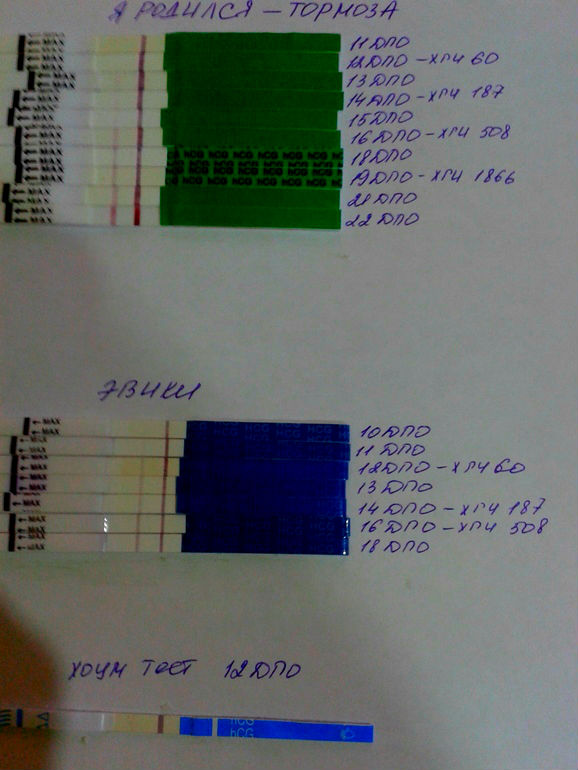 Я РОДИЛСЯ - ТОРМОЗА
11 ДПО
12 ДПО - ХГЧ 60
13 ДПО
14 ДПО - ХГЧ 187
15 ДПО
16 ДПО - ХГЧ 508
18 ДПО
19 ДПО - ХГЧ 1866
21 ДПО
22 ДПО
MAX
MAX
MAX
MAX
MAX
MAX
MAX
MAX
MAX
MAX
HCG HCG HCG HCG
HCG HCG HCG HCG
HCG HCG HCG HCG
ЭВИКИ
10 ДПО
11 ДПО
12 ДПО - ХГЧ 60
13 ДПО
14 ДПО - ХГЧ 187
16 ДПО - ХГЧ 508
18 ДПО
MAX
MAX
MAX
MAX
MAX
MAX
MAX
HCG
ХОУМ ТЕСТ 12 ДПО
hCG
hCG